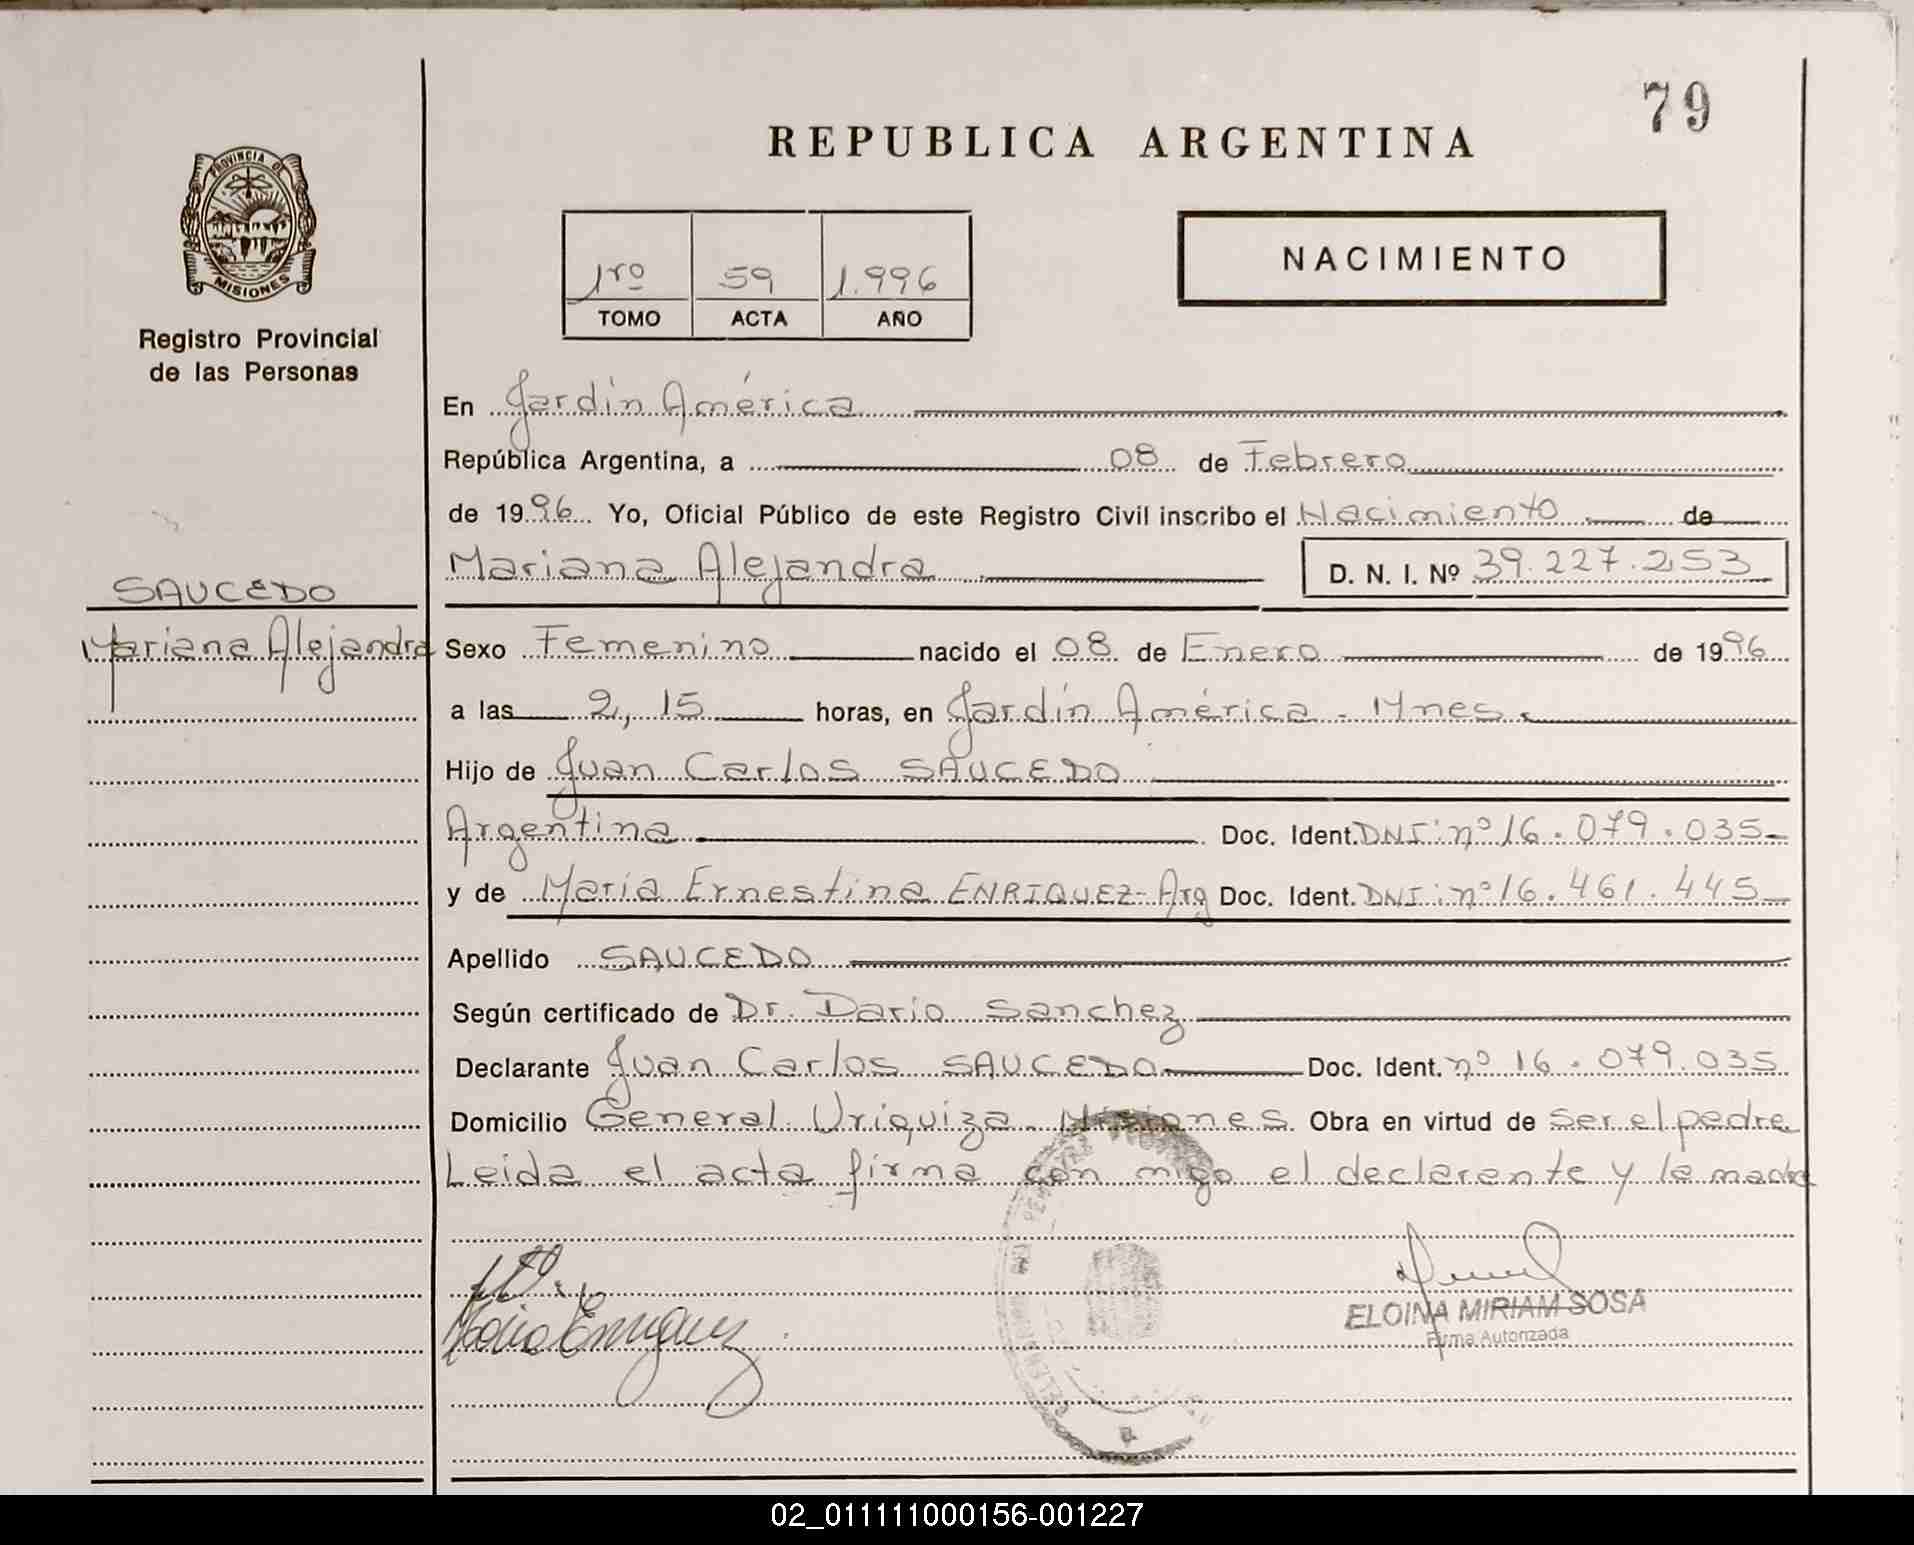 79
REPUBLICA ARGENTINA
PROVINCIA DE
MISIONES
Registro Provincial
de las Personas
NACIMIENTO
1ro 59 1.996
TOMO ACTA AÑO
En Jardín América
República Argentina, a 08 de Febrero
de 1996 Yo, Oficial Público de este Registro Civil inscribo el Nacimiento de
Mariana Alejandra D. N. I. Nº 39.227.253
SAUCEDO
Mariana Alejandra
Sexo Femenino nacido el 08 de Enero de 1996
a las 2,15 horas, en Jardín América - Mnes.
Hijo de Juan Carlos SAUCEDO
Argentina Doc. Ident. DNI: nº 16.079.035-
y de María Ernestina ENRIQUEZ- Arg Doc. Ident. DNI: nº 16.461.445-
Apellido SAUCEDO
Según certificado de Dr. Dario Sanchez
Declarante Juan Carlos SAUCEDO Doc. Ident. nº 16.079.035
Domicilio General Uriquiza - Misiones. Obra en virtud de ser el padre
Leida el acta firma con migo el declarante y la madre
María Enriquez
ELOINA MIRIAM SOSA
Firma Autorizada
02_011111000156-001227